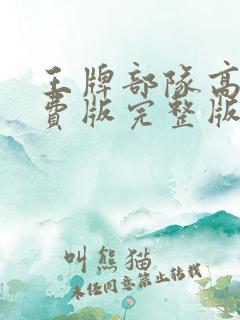 王牌部队高
费版完整版
叫熊猫
未经同意禁止转载